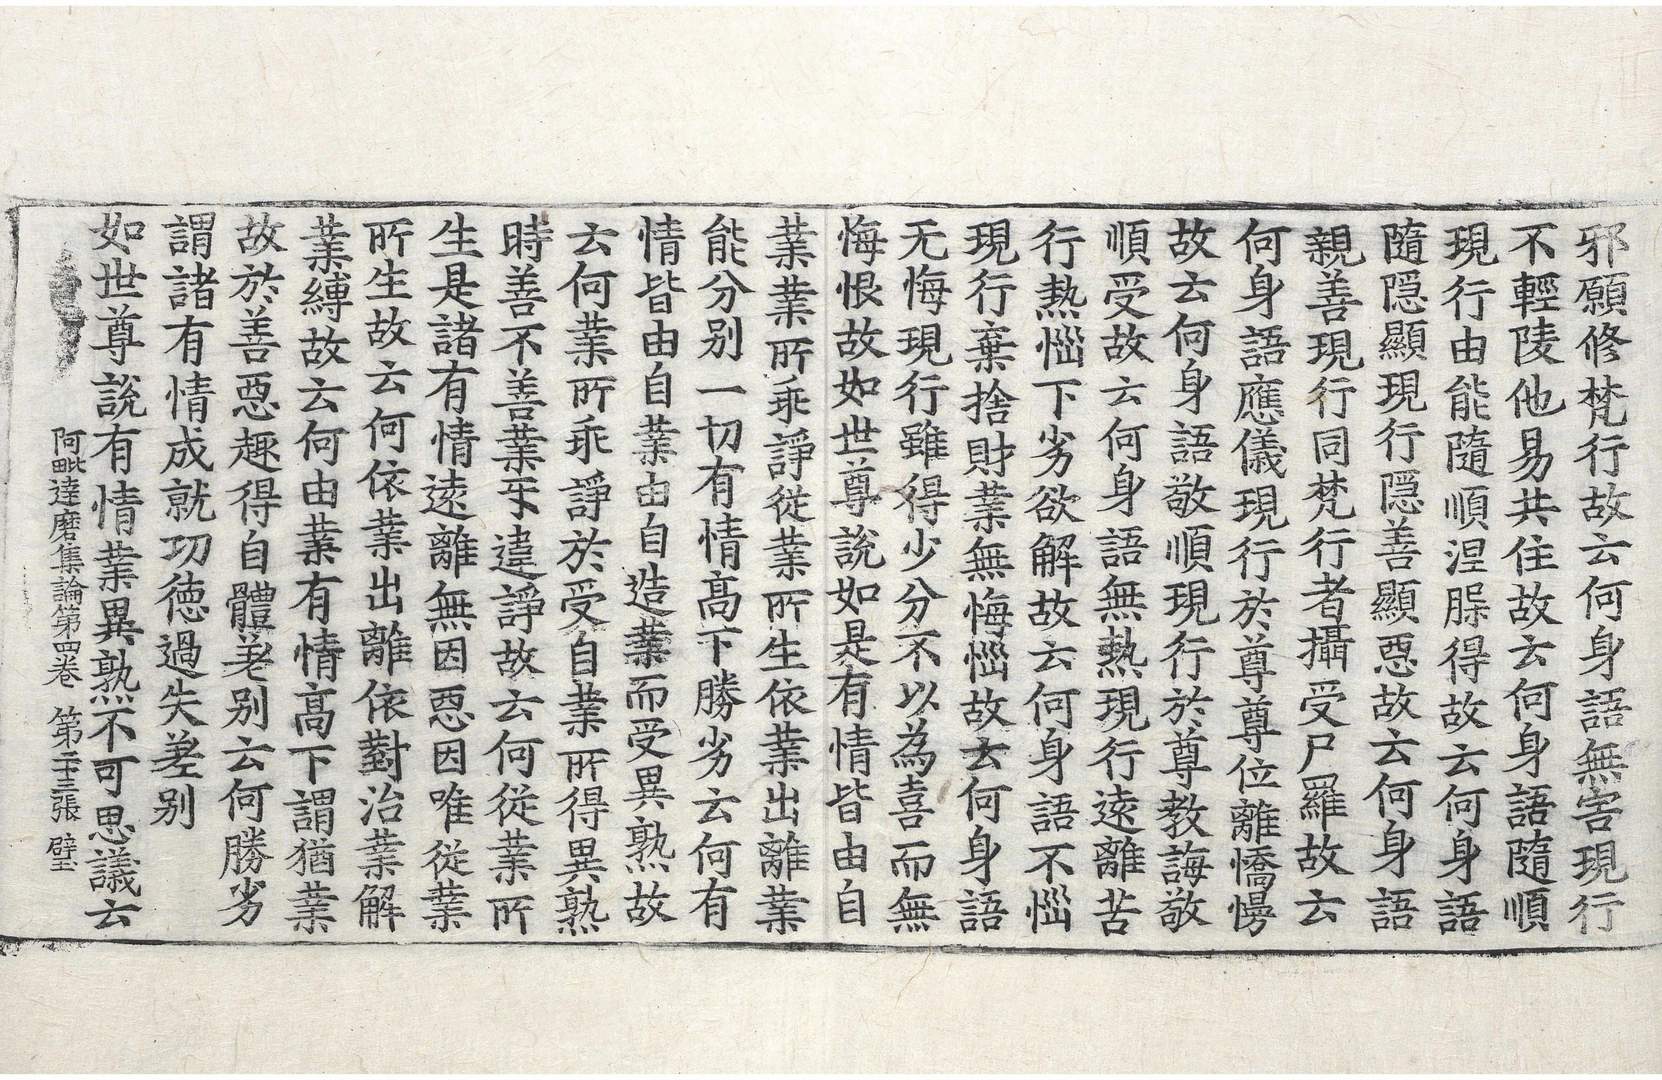 邪願修梵行故云何身語無害現行
不輕陵他易共住故云何身語隨順
現行由能隨順涅槃得故云何身語
隨隱顯現行隱善顯惡故云何身語
親善現行同梵行者攝受尸羅故云
何身語應儀現行於尊尊位離憍慢
故云何身語敬順現行於尊教誨敬
順受故云何身語無熱現行遠離苦
行熱惱下劣欲解故云何身語不惱
現行棄捨財業無悔惱故云何身語
无悔現行雖得少分不以為喜而無
悔恨故如世尊說如是有情皆由自
業業所乖諍從業所生依業出離業
能分別一切有情高下勝劣云何有
情皆由自業由自造業而受異熟故
云何業所乖諍於受自業所得異熟
時善不善業乑違諍故云何從業所
生是諸有情遠離無因惡因唯從業
所生故云何依業出離依對治業解
業縛故云何由業有情高下謂猶業
故於善惡趣得自體差别云何勝劣
謂諸有情成就功德過失差别
如世尊說有情業異熟不可思議云
阿毗達磨集論第四卷 第二十三張 壁